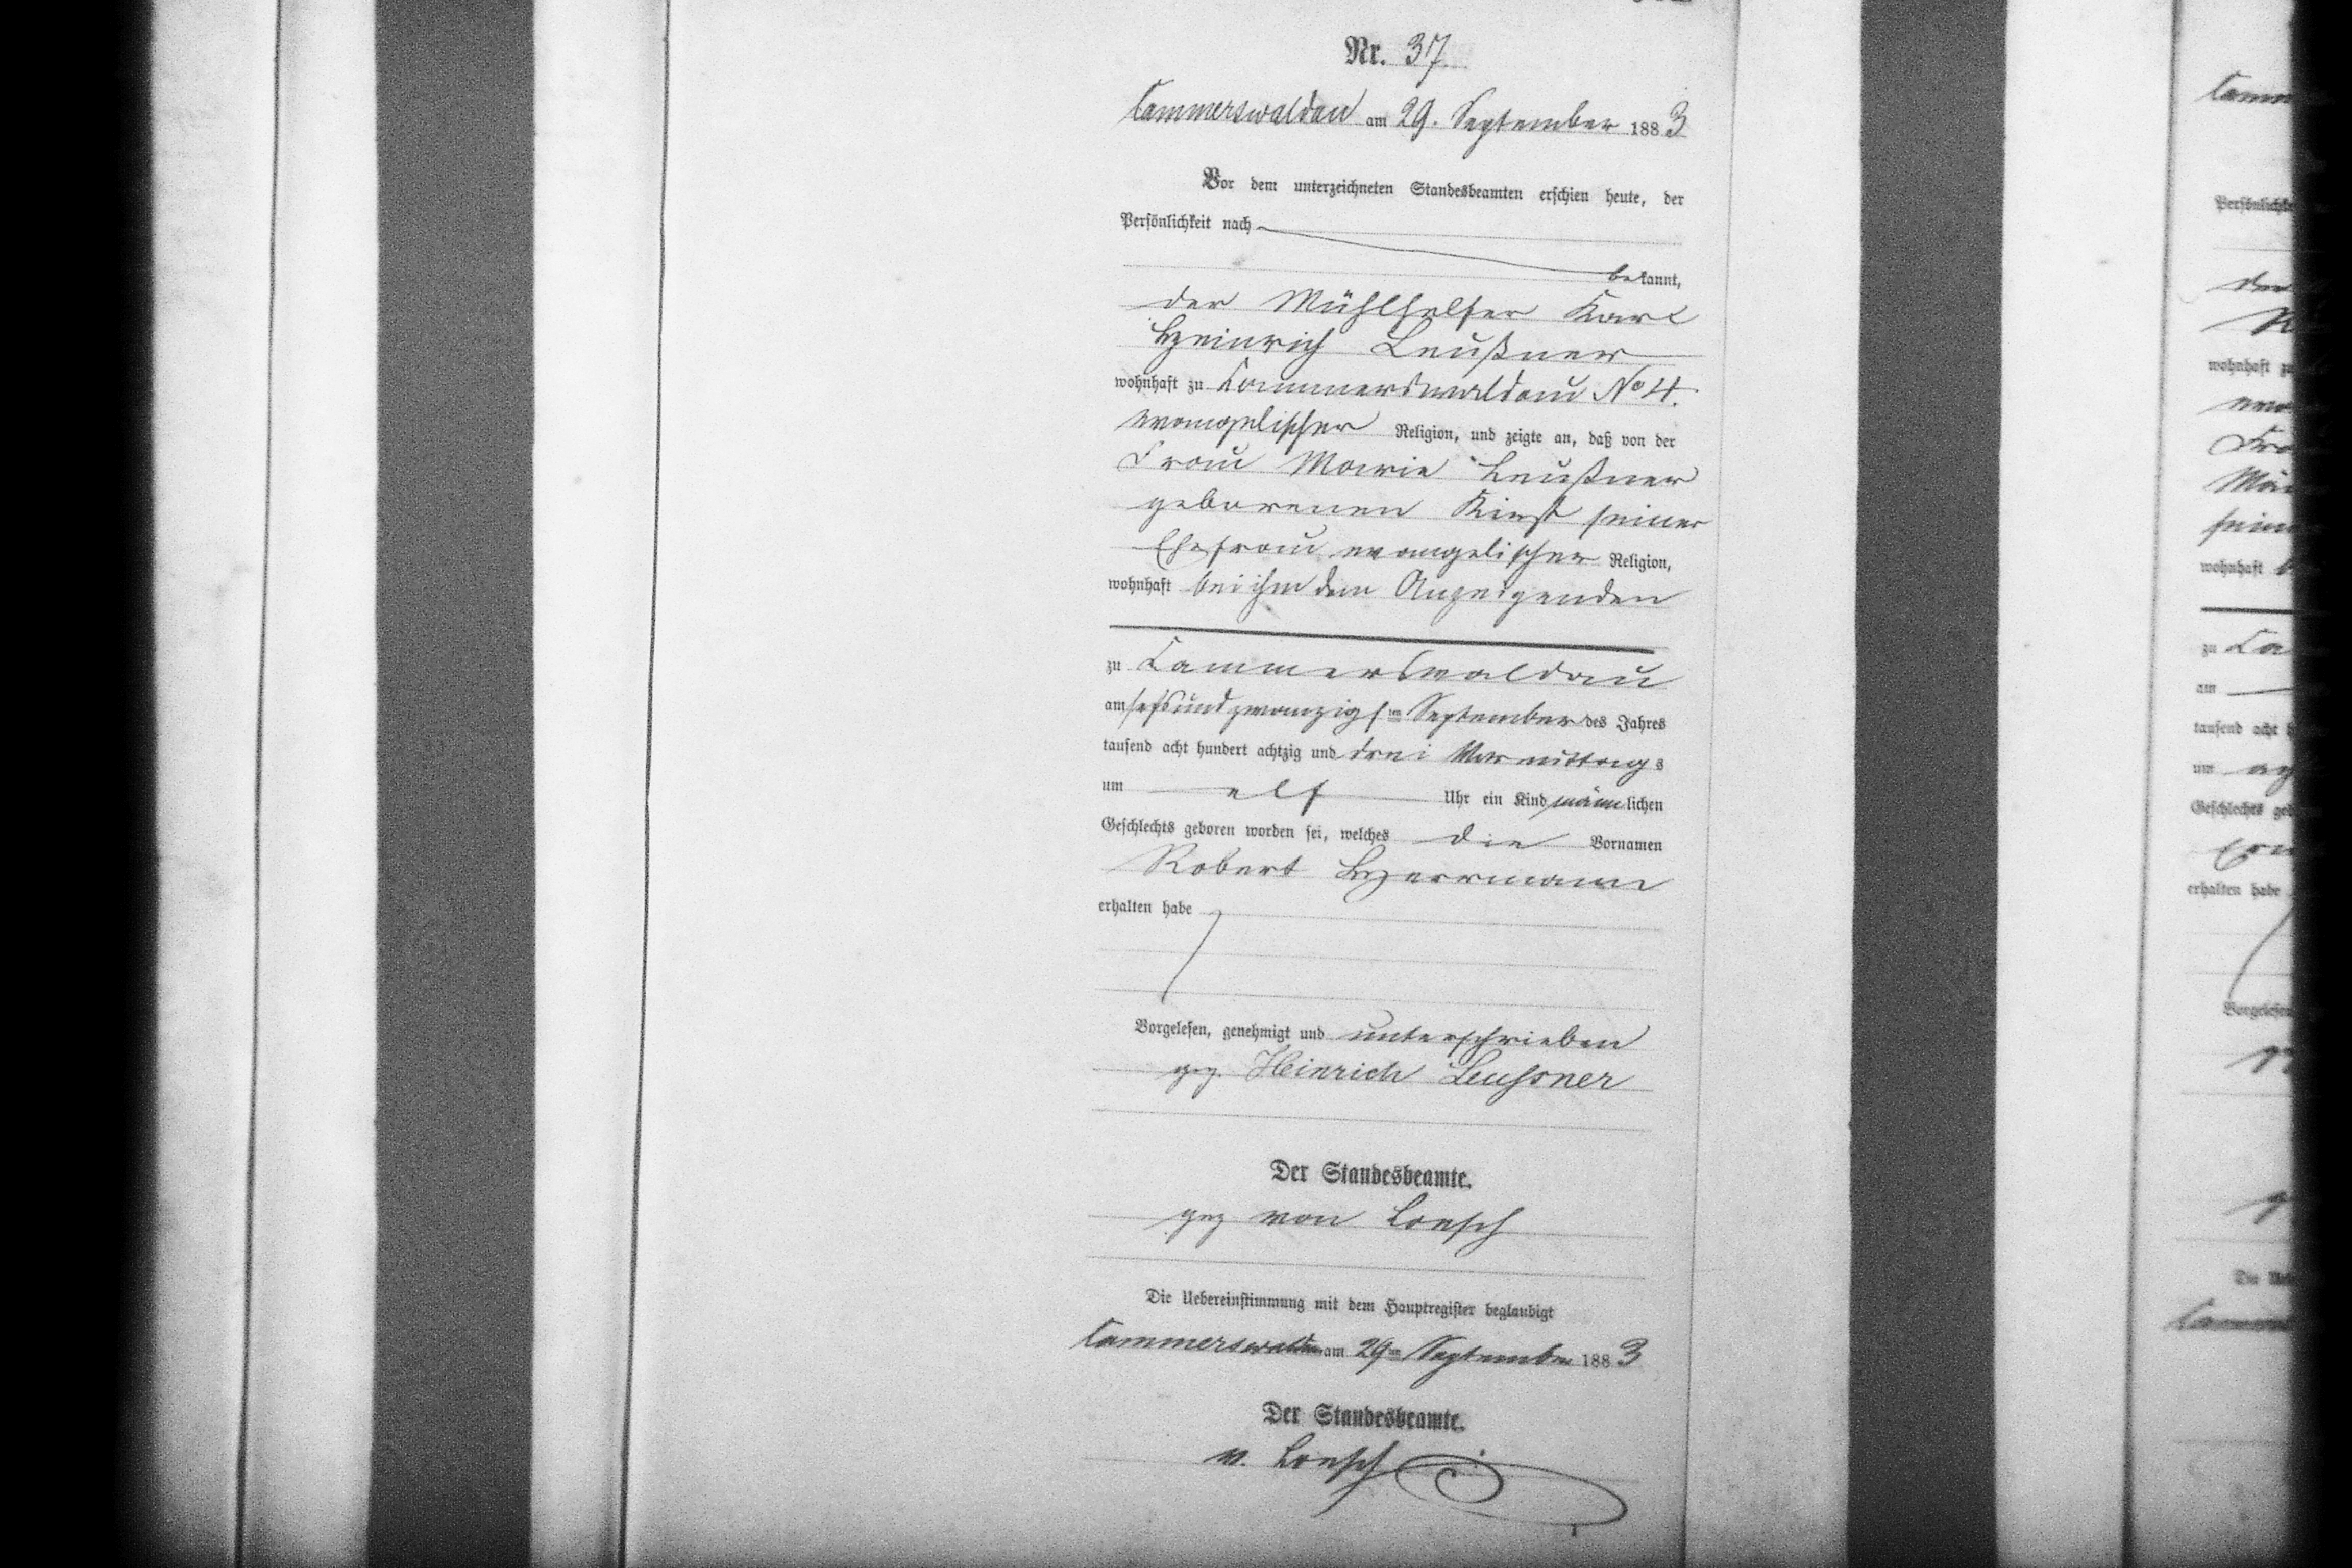 Nr. 37.
Cammerswaldau am 29. September 1883
Vor dem unterzeichneten Standesbeamten erschien heute, der
Persönlichkeit nach
bekannt,
der Mühlhelfer Karl
Heinrich Leußner
wohnhaft zu Cammerswaldau No 4.
evangelischer Religion, und zeigte an, daß von der
Frau Marie Leußner
geborenen Kirst seiner
Ehefrau evangelischer Religion,
wohnhaft bei ihm dem Anzeigenden
zu Cammerswaldau
am sechsundzwanzigsten September des Jahres
tausend acht hundert achtzig und drei Vormittags
um elf Uhr ein Kind männlichen
Geschlechts geboren worden sei, welches die Vornamen
Robert Herrmann
erhalten habe
Vorgelesen, genehmigt und unterschrieben
gez. Heinrich Leussner
Der Standesbeamte.
gez von Loesch
Die Uebereinstimmung mit dem Hauptregister beglaubigt
Cammerswaldau am 29ten September 1883
Der Standesbeamte.
v. Loesch